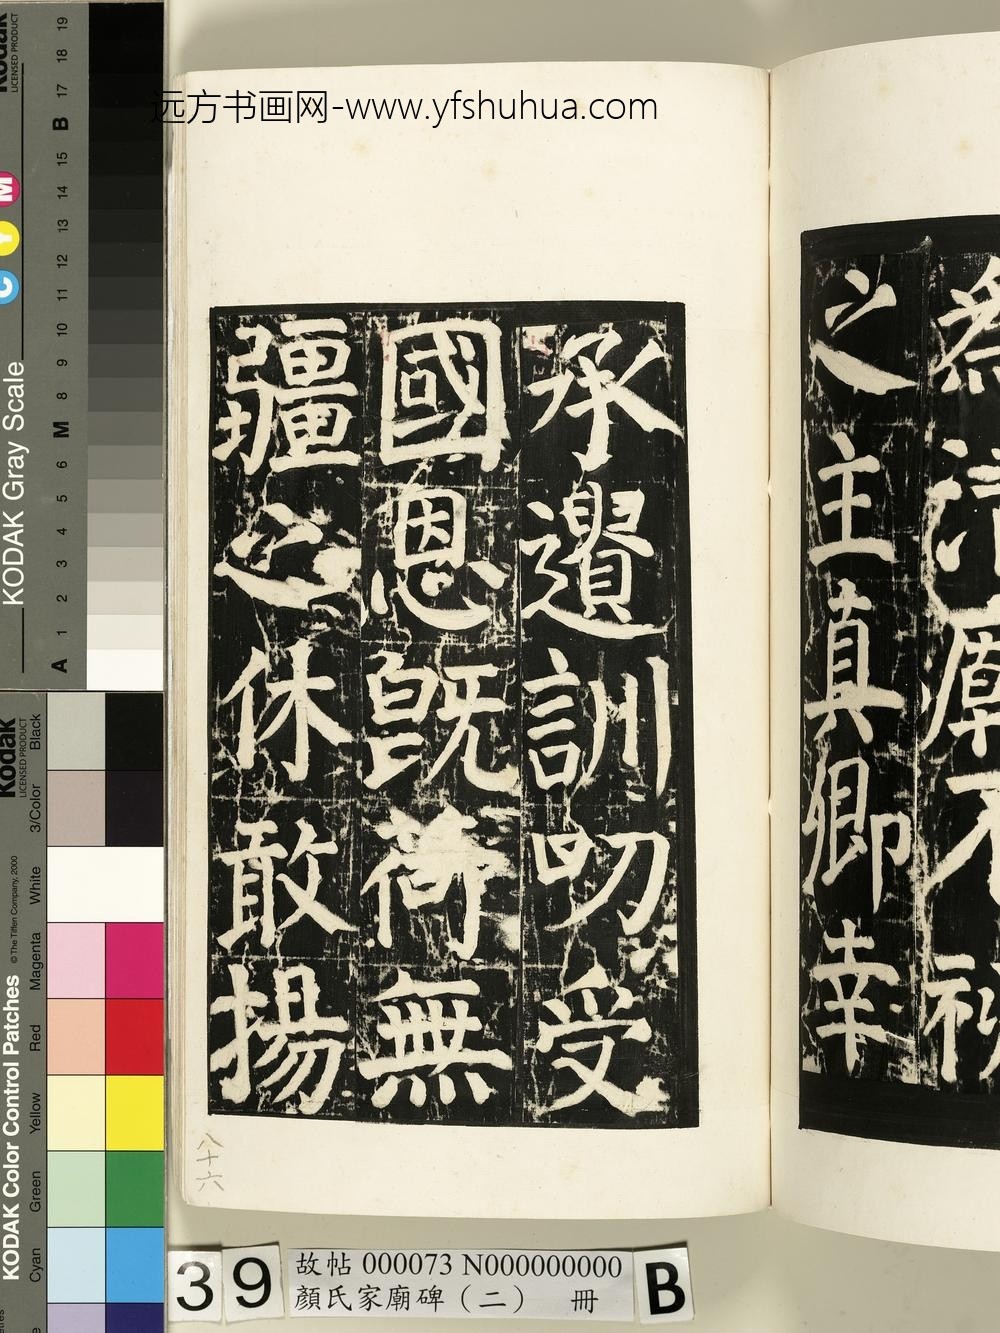 远方书画网-www.yfshuhua.com
之主真卿幸
承遺訓叨受
國恩既荷無
疆之休敢揚
八十六
39
故帖 000073 N000000000
顏氏家廟碑（二） 冊
B
KODAK Gray Scale
Kodak
LICENSED PRODUCT
C Y M
A 1 2 3 4 5 6 M 8 9 10 11 12 13 14 15 B 17 18 19
KODAK Color Control Patches
© The Tiffen Company, 2000
Kodak
LICENSED PRODUCT
Cyan Green Yellow Red Magenta White 3/Color Black